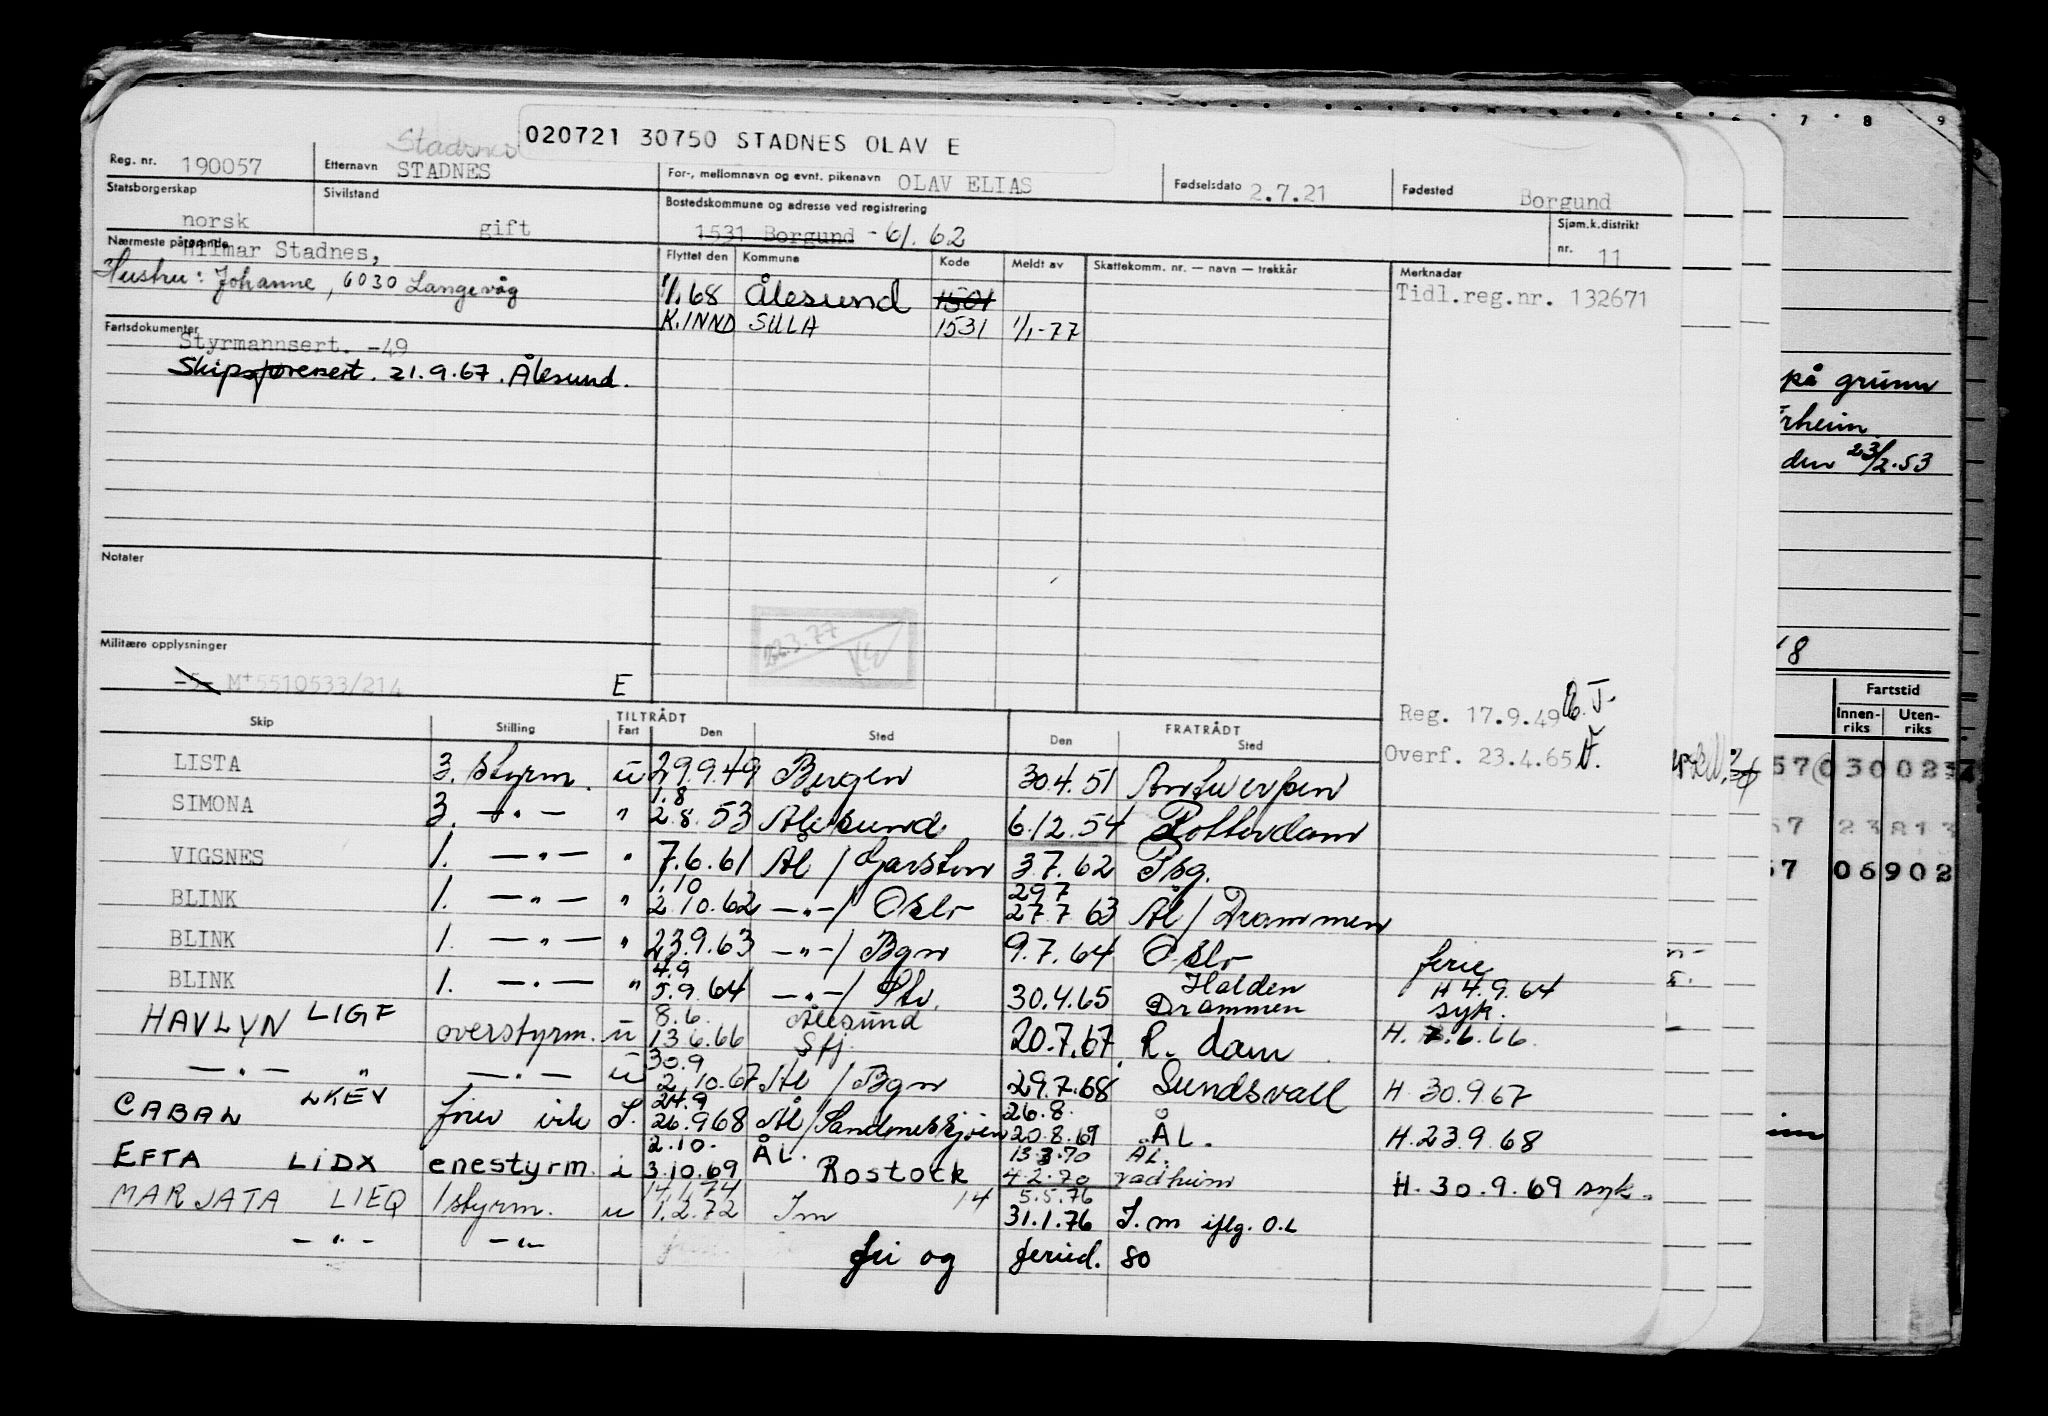 Stadsnes
020721 30750 STADNES OLAV E
Reg. nr. 190057 Etternavn STADNES For-, mellomnavn og evnt. pikenavn OLAV ELIAS Fødselsdato 2.7.21 Fødested Borgund
Statsborgerskap norsk Sivilstand gift Bostedskommune og adresse ved registrering 1531 Borgund - 61.62 Sjøm.k.distrikt nr. 11
Nærmeste pårørende Hilmar Stadnes,
Hustru: Johanne, 6030 Langevåg
Flyttet den Kommune Kode Meldt av Skattekomm. nr. — navn — trekkår Merknader
1/1 68 Ålesund 1501 Tidl.reg.nr. 132671
K.INND SULA 1531 1/1-77
Fartsdokumenter
Styrmannsert. -49
Skipsførersert. 21.9.67. Ålesund.
på grunn
den 23/2.53
Notater
22.3.77
Militære opplysninger
-5- M+5510533/214 E
Reg. 17.9.49
Overf. 23.4.65
Skip Stilling Fart TILTRÅDT Den Sted FRATRÅDT Den Sted
LISTA 3. styrm. u 29.9.49 Bergen 30.4.51 Antwerpen
1.8
SIMONA 3. —"— " 2.8.53 Ålesund 6.12.54 Rotterdam
VIGSNES 1. —"— " 7.6.61 Ål / Garston 3.7.62 Tbg.
1.10 29.7
BLINK 1. —"— " 2.10.62 —"—/ Oslo 27.7.63 Ål / Drammen
BLINK 1. —"— " 23.9.63 —"—/ Bgn 9.7.64 Oslo ferie
4.9 Halden H 4.9.64
BLINK 1. —"— " 5.9.64 —"—/ 30.4.65 Drammen syk.
8.6. Ålesund
HAVLYN LIGF overstyrm. u 13.6.66 Sfj. 20.7.67 R. dam H. 7.6.66.
30.9
—"— " —"— u 2.10.67 Ål / Bgn 29.7.68 Sundsvall H 30.9.67
24.9 26.8.
CABAL LKEV 26.9.68 Ål / Sandnessjøen 20.8.69 ÅL. H.23.9.68
2.10. ÅL. 13.3.70 ÅL.
EFTA LIDX enestyrm. i 3.10.69 Rostock 4.2.70 Vadheim H. 30.9.69 syk.
14.1.74 5.5.76
MARJATA LIEQ 1styrm. u 1.2.72 Im 14 31.1.76 I.m iflg. O.L
—"— —"— fri og feried. 80
7 8 9
Fartstid
Innenriks Utenriks
57 03002
23813
57 06902